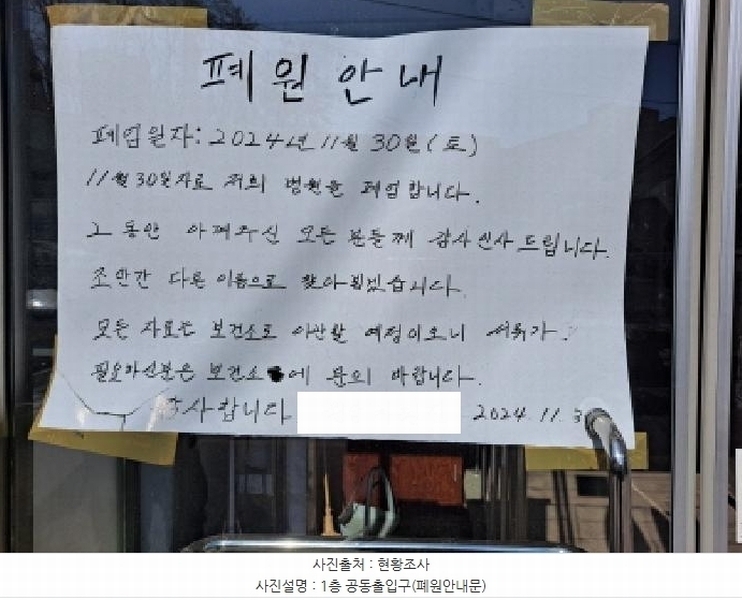 폐원안내
폐업일자: 2024년 11월 30일(토)
11월 30일자로 저희 병원을 폐업합니다.
그동안 아껴주신 모든 분들께 감사인사 드립니다.
조만간 다른 이름으로 찾아뵙겠습니다.
모든 자료는 보건소로 이관할 예정이오니 서류가
필요하신분은 보건소에 문의 바랍니다.
사합니다 2024. 11. 3
사진출처 : 현황조사
사진설명 : 1층 공동출입구(폐원안내문)